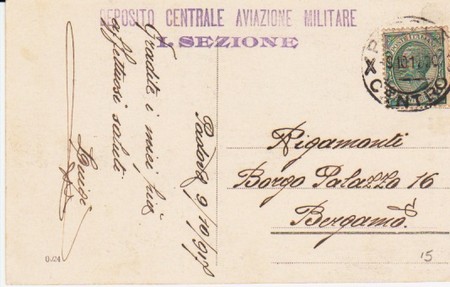 DEPOSITO CENTRALE AVIAZIONE MILITARE
I. SEZIONE
Padova 9/10/917
Gradite i miei più
affettuosi saluti
Luigi
Rigamonti
Borgo Palazzo 16
Bergamo
CENTRO
15